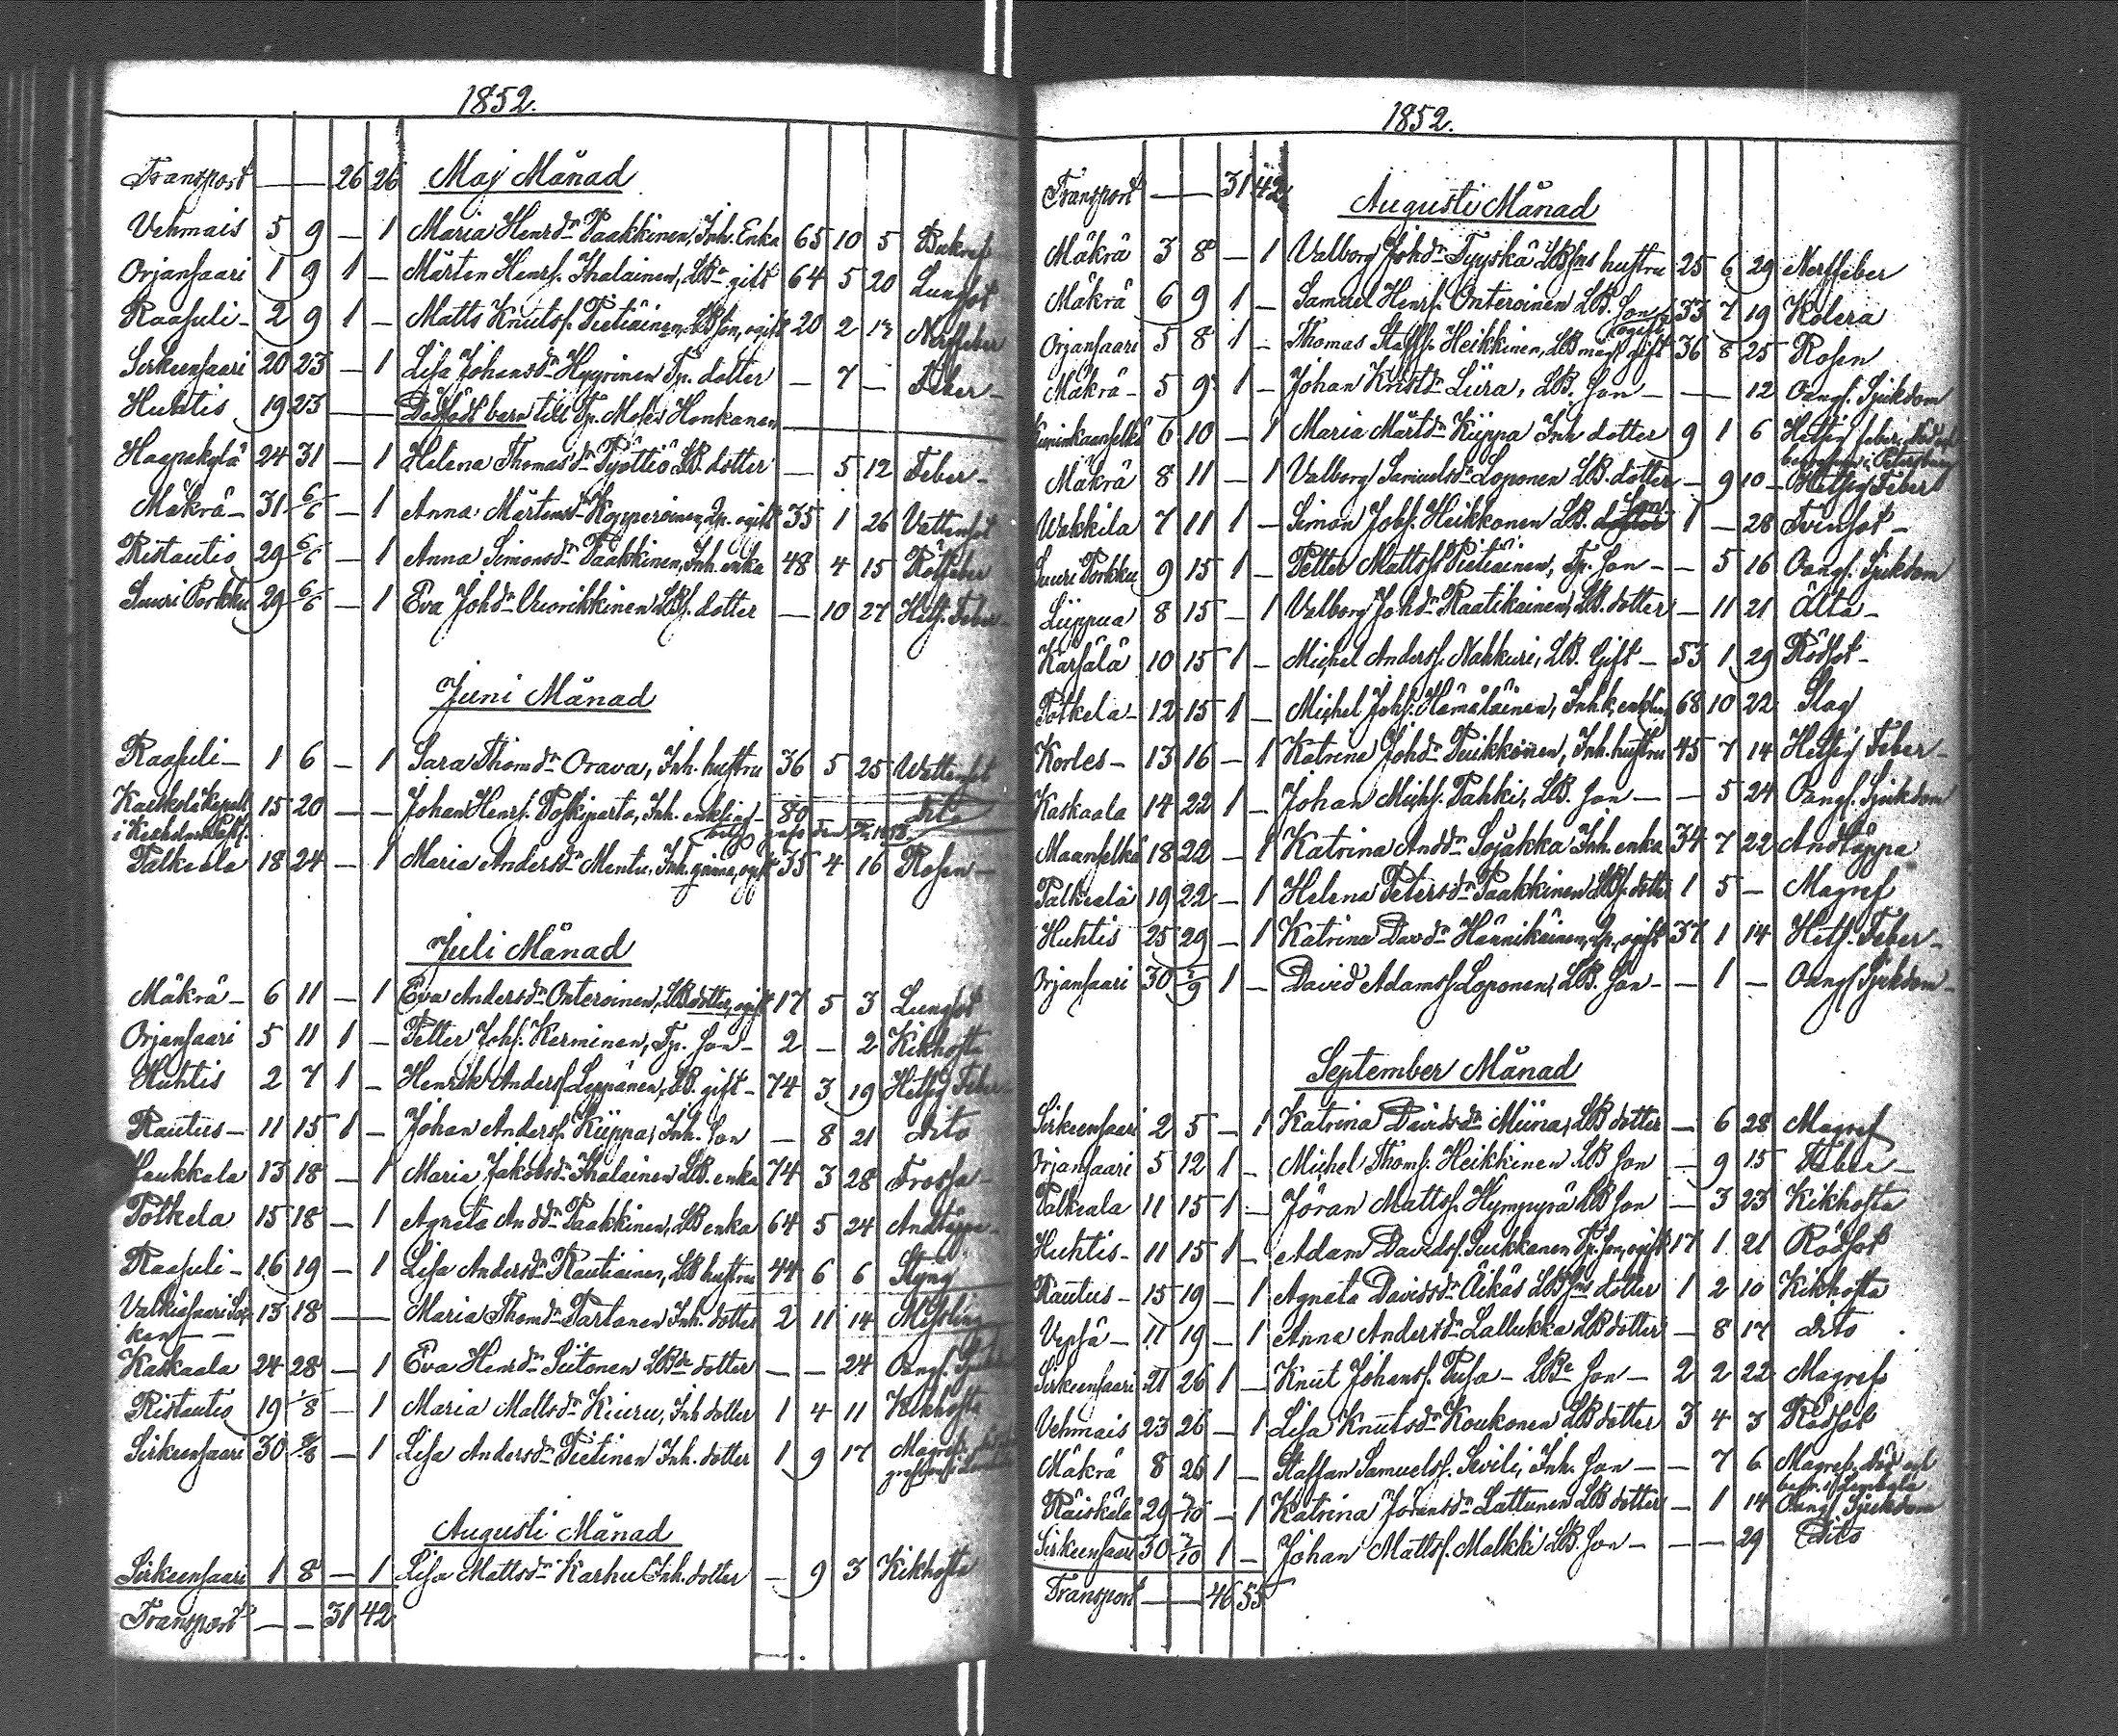 1852.
Transport — — 26 26 Maj Månad
Vehmais 5 9 — 1 Maria Henrsdr Paakkinen, Inh. Enka 65 10 5
Orjansaari 1 9 1 — Mårten Henrs. Ihalainen, LBr gift 64 5 20 Lungsot
Raasuli — 2 9 1 — Matts Knutss. Pietiäinen, LBson, ogift 20 2 17 Nerffeber
Sirkeensaari 20 23 — 1 Lisa Johansdr Hyyrinen Tp. dotter — 7 — Feber —
Huhtis 19 23 — — Dödfödt barn till Tp. Moses Honkanen — — —
Haapakylä 24 31 — 1 Helena Thomasdr Pyöttiö LB. dotter — 5 12 Feber —
Mäkrä — 31 6/6 — 1 Anna Mårtensdr Kopperoinen, Tp. ogift 35 1 26 Vattensot
Ristautis 29 6/6 — 1 Anna Simonsdr Paakkinen, Inh. enka 48 4 15 Rötfeber
Suuri Porkku 29 6/6 — 1 Eva Johdr Vuorikkinen LBs. dotter — 10 27 Hets. Feber —
Juni Månad
Raasuli — 1 6 — 1 Sara Thomdr Orava, Inh. hustru 36 5 25 Wattensot
Kaskela Kapell 15 20 — — Johan Henrs. Poskiparta, Inh. enkling — 80 dito
Palkeala 18 24 — 1 Maria Andersdr Mentu, Inh. qvinna, ogift 35 4 16 Rosen —
Juli Månad
Mäkrä — 6 11 — 1 Eva Andersdr Onteroinen, LB dotter, ogift 17 5 3 Lungsot
Orjansaari 5 11 1 — Petter Johs. Kerminen, Tp. Son — 2 — 2 Kikhosta
Huhtis 2 7 1 — Henrik Anders. Leppänen, LB. gift — 74 3 19 Hetsig Feber
Rautus — 11 15 1 — Johan Anders. Kiippa, Inh. Son — 8 21 dito
Haukkala 13 18 — 1 Maria Jakobsdr Ihalainen LB. enka 74 3 28 Frossa —
Potkela 15 18 — 1 Agneta Anddr Paakkinen, LB enka 64 5 24 Andtäppa —
Raasuli — 16 19 — 1 Lisa Andersdr Rautiainen, LB hustru 44 6 6 Styng
Valkiasaari Soc- 13 18 — — Maria Thomdr Partanen Inh. dotter 2 11 14 Messling
ken — —
Kaskaala 24 28 — 1 Eva Henrdr Siitonen LBde dotter — — 24 Oangf. Sjukd.
Ristautis 19 1/8 — 1 Maria Mattsdr Kiuru, Inh dotter 1 4 11 Kikhosta
Sirkeensaari 30 — 1 Lisa Andersdr Pietinen Inh. dotter 1 9 17 Magref.
Augusti Månad
Sirkeensaari 1 8 — 1 Lisa Mattsdr Karhu Inh. dotter — 9 3 Kikhosta
Transport — — 31 42
1852.
Transport — — 31 42 Augusti Månad
Mäkrä 3 8 — 1 Valborg Johdr Tyyskä LBsns hustru 25 6 29 Nerffeber
Mäkrä 6 9 1 — Samuel Henrs. Onteroinen LB. Son, ogift 33 7 19 Kolera
Orjansaari 5 8 1 — Thomas Staffs. Heikkinen, LB måg, gift 36 8 25 Rosen
Mäkrä — 5 9 1 — Johan Kristdr Liira, LB. Son — — — 12 Oangf. Sjukdom
6 10 — 1 Maria Mårtdr Kiippa Inh dotter 9 1 6 Hetsig feber, död och
begrafven i Petersburg
Mäkrä 8 11 — 1 Valborg Samuelsdr Loponen LB. dotter — 9 10 — Hetsig Feber
Wakkila 7 11 1 — Simon Jobs. Heikkonen LB. dotter Son 1 — 28 Tvinsot —
Suuri Porkku 9 15 1 — Petter Mattss. Pietiäinen, Tp. Son — — 5 16 Oangf. Sjukdom
Liippua 8 15 — 1 Valborg Johdr Raatikainen, LB. dotter — 11 21 Älta —
Karsälä 10 15 1 — Michel Anderss. Nahkuri, LB. Gift — 53 1 29 Rödsot —
Potkela — 12 15 1 — Michel Johs. Hämäläinen, Inh. enkling 68 10 22 Slag
Korles — 13 16 — 1 Katrina Johdr Puikkonen, Inh. hustru 45 7 14 Hetsig Feber —
Kaskaala 14 22 1 — Johan Michs. Pahki, LB. Son — — 5 24 Oangf. Sjukdom
Maanselkä 18 22 — 1 Katrina Anddr Sojakka Inh. enka 34 7 22 Andtäppa
Palkeala 19 22 — 1 Helena Petersdr Paakkinen LBs. dotter 1 5 — Magref
Huhtis 25 29 — 1 Katrina Davdr Hännikäinen, Tp. ogift 37 1 14 Hets. Feber —
Orjansaari 30 2/9 1 — David Adamss. Loponen, LB. Son — — 1 — Oangf Sjukdom —
September Månad
Sirkeensaari 2 5 — 1 Katrina Davidsdr Miina, LB dotter — 6 28 Magref
Orjansaari 5 12 1 — Michel Thoms. Heikkinen LB Son — 9 15 Feber —
Palkeala 11 15 1 — Jöran Mattss. Hympyrä LB Son — 3 23 Kikhosta
Huhtis — 11 15 1 — Adam Davids. Suikkanen Tp. Son, ogift 17 1 21 Rödsot
Rautus — 15 19 — 1 Agneta Davidsdr Äikäs LBsns dotter 1 2 10 Kikhosta
Vepsä — 11 19 — 1 Anna Andersdr Lallukka LB dotter — 8 17 dito
Sirkeensaari 21 26 1 — Knut Johans. Pusa — LBr Son — 2 2 22 Magref
Vehmais 23 26 — 1 Lisa Knutsdr Koukonen LB dotter 3 4 3 Rödsot
Mäkrä 8 26 1 — Staffan Samuels. Sevili, Inh. Son — — 7 6 Magref. död och
begr. i Lembala
Räiskälä 29 3/10 — 1 Katrina Jöransdr Lattunen LB dotter — 1 14 Oangf Sjukdom
Sirkeensaari 30 3/10 1 — Johan Mattss. Malkki LB. Son — — — 29 Dito
Transport — — 46 55